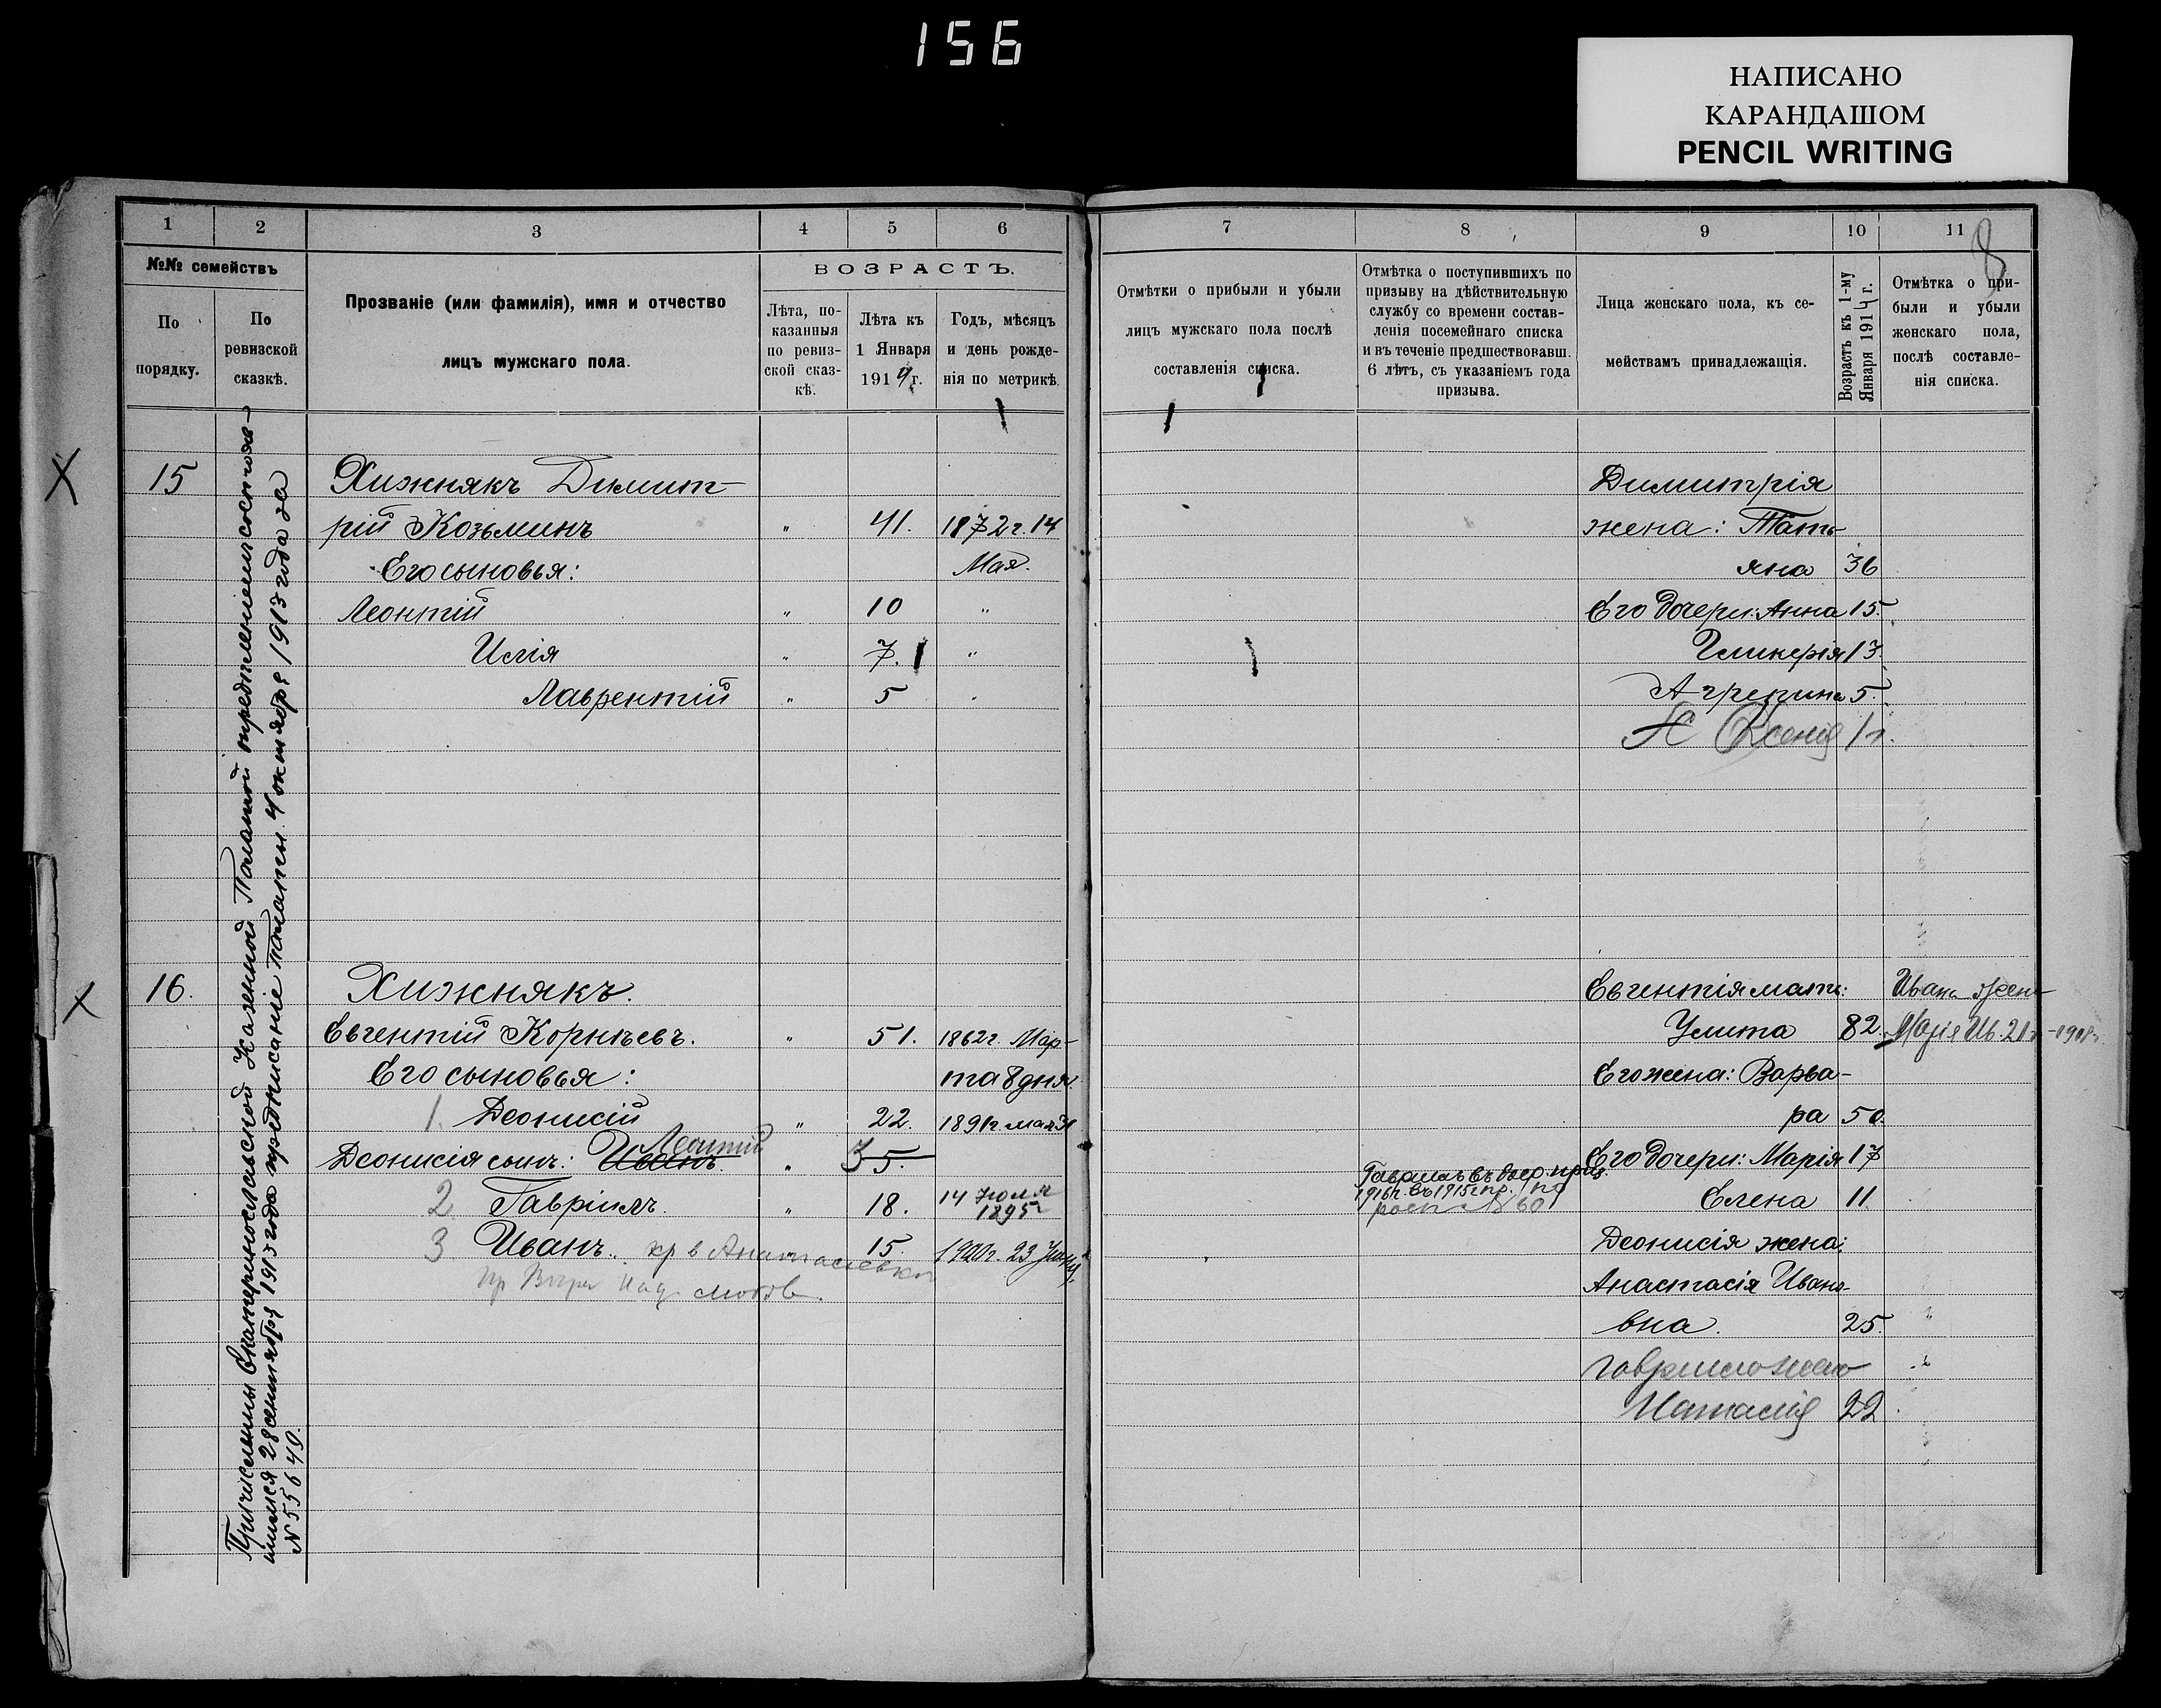 156
НАПИСАНО
КАРАНДАШОМ
PENCIL WRITING
8
1 2 3 4 5 6
№№ семействъ
По порядку.
По ревизской сказкѣ.
Прозваніе (или фамилія), имя и отчество
лицъ мужскаго пола.
ВОЗРАСТЪ.
Лѣта, по-
казанныя
по ревиз-
ской сказ-
кѣ.
Лѣта къ
1 Января
1914 г.
Годъ, мѣсяцъ
и день рожде-
нія по метрикѣ.
Причислены Екатеринославской Казенной Палатой опредѣленіемъ состояв-
шимся 28 сентября 1913 года предписаніе Палаты 4 октября 1913 года за
№ 55640.
15 Хижнякъ Димит-
рій Козьминъ " 41. 1872 г. 14
Его сыновья: Мая.
Леонтій " 10 "
Илія " 7. "
Лаврентій " 5 "
16. Хижнякъ.
Евгентій Корнѣевъ. " 51. 1862 г. Мар-
Его сыновья: та 8 дня
1. Деонисій " 22. 1891 г. мая
Леонтій
Деонисія сынъ: Иванъ. " 5.
2 Гавріилъ. " 18. 14 Іюля
1895 г
3 Иванъ. кр в Анастасіевки 15. 1900 г. 23 Янв
7 8 9 10 11
Отмѣтки о прибыли и убыли
лицъ мужскаго пола послѣ
составленія списка.
Отмѣтка о поступившихъ по
призыву на дѣйствительную
службу со времени состав-
ленія посемейнаго списка
и въ теченіе предшествовавш.
6 лѣтъ, съ указаніемъ года
призыва.
Лица женскаго пола, къ се-
мействамъ принадлежащія.
Возрастъ къ 1-му
Января 1914 г.
Отмѣтка о при-
были и убыли
женскаго пола,
послѣ составле-
нія списка.
Димитрія
жена: Тать-
яна 36
Его дочери: Анна 15.
Гликерія 13.
Агрепина 5.
Ксенія 1 г.
Евгентія мать: Ивана жена
Улита 82. Марія Ив. 21 г - 1918 г.
Его жена: Варва-
ра 50.
Его дочери: Марія 17
Гавріилъ въ
1916 г. въ 1915 г пр. по
росп № 60
Елена 11.
Деонисія жена:
Анастасія Ивано-
вна. 25. "
Гавріила жена
Натасія 22